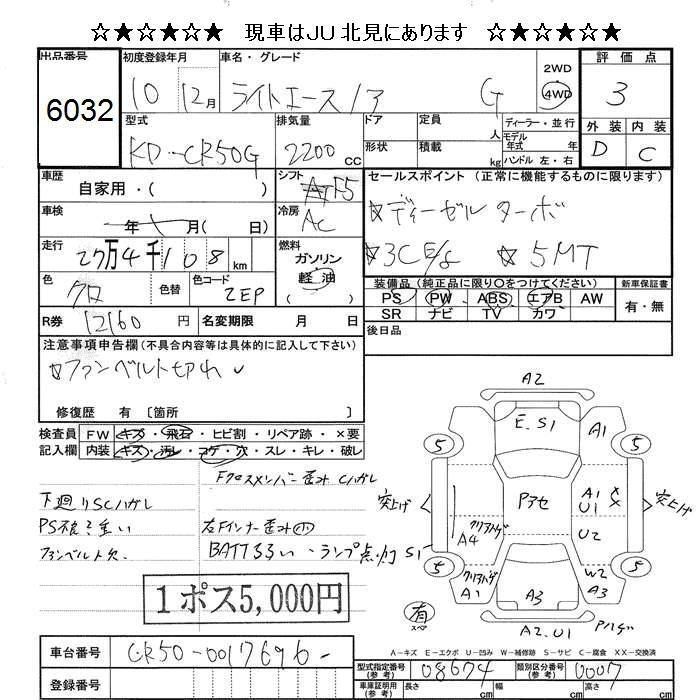 ☆★☆★☆★☆ 現車はJU北見にあります ☆★☆★☆★☆
出品番号 初度登録年月 車名・グレード 2WD 評価点
6032 10 12月 ライトエースノア G 4WD 3
型式 排気量 ドア 定員 ディーラー・並行 外装 内装
人 モデル年式 年
KD-CR50G 2200CC 形状 積載 kg ハンドル 左・右 D C
車歴 自家用・( ) シフト AT F5 セールスポイント (正常に機能するものに限ります)
車検 年 月( 日) 冷房 AC ☆ディーゼルターボ
走行 27万4千108km 燃料 ガソリン 軽油 ☆3C E/g ☆5MT
色 クロ 色替 色コード 2EP 装備品 (純正品に限り○をつけてください) 新車保証書
PS PW ABS エアB AW 有・無
R券 12160円 名変期限 月 日 SR ナビ TV カワ
注意事項申告欄(不具合内容等は具体的に記入して下さい) 後日品
☆ファンベルト切れ
修復歴 有〔箇所 〕
検査員 FW キズ・飛石・ヒビ割・リペア跡・×要
記入欄 内装 キズ・汚レ・コゲ・穴・スレ・キレ・破レ
Fクロスメンバー歪み Cハガレ
下廻りSCハガレ
PS 重い 左Fインナー歪み小
ファンベルト欠 BATTるい ランプ点灯 S1
1ポス5,000円
A2
E.S1 A1
5 5
突上げ Pアセ A1 U1 突上げ
クリアハゲ A4 U2
クリアハゲ A1 W2 A3
5 5
A3
有 スペア A2.U1 Pハゲ
A-キズ E-エクボ U-凹み W-補修跡 S-サビ C-腐食 XX-交換済
車台番号 CR50-0017696- 型式指定番号(参考) 08674 類別区分番号(参考) 0007
登録番号 車庫証明用(参考) 長さ cm 幅 cm 高さ cm